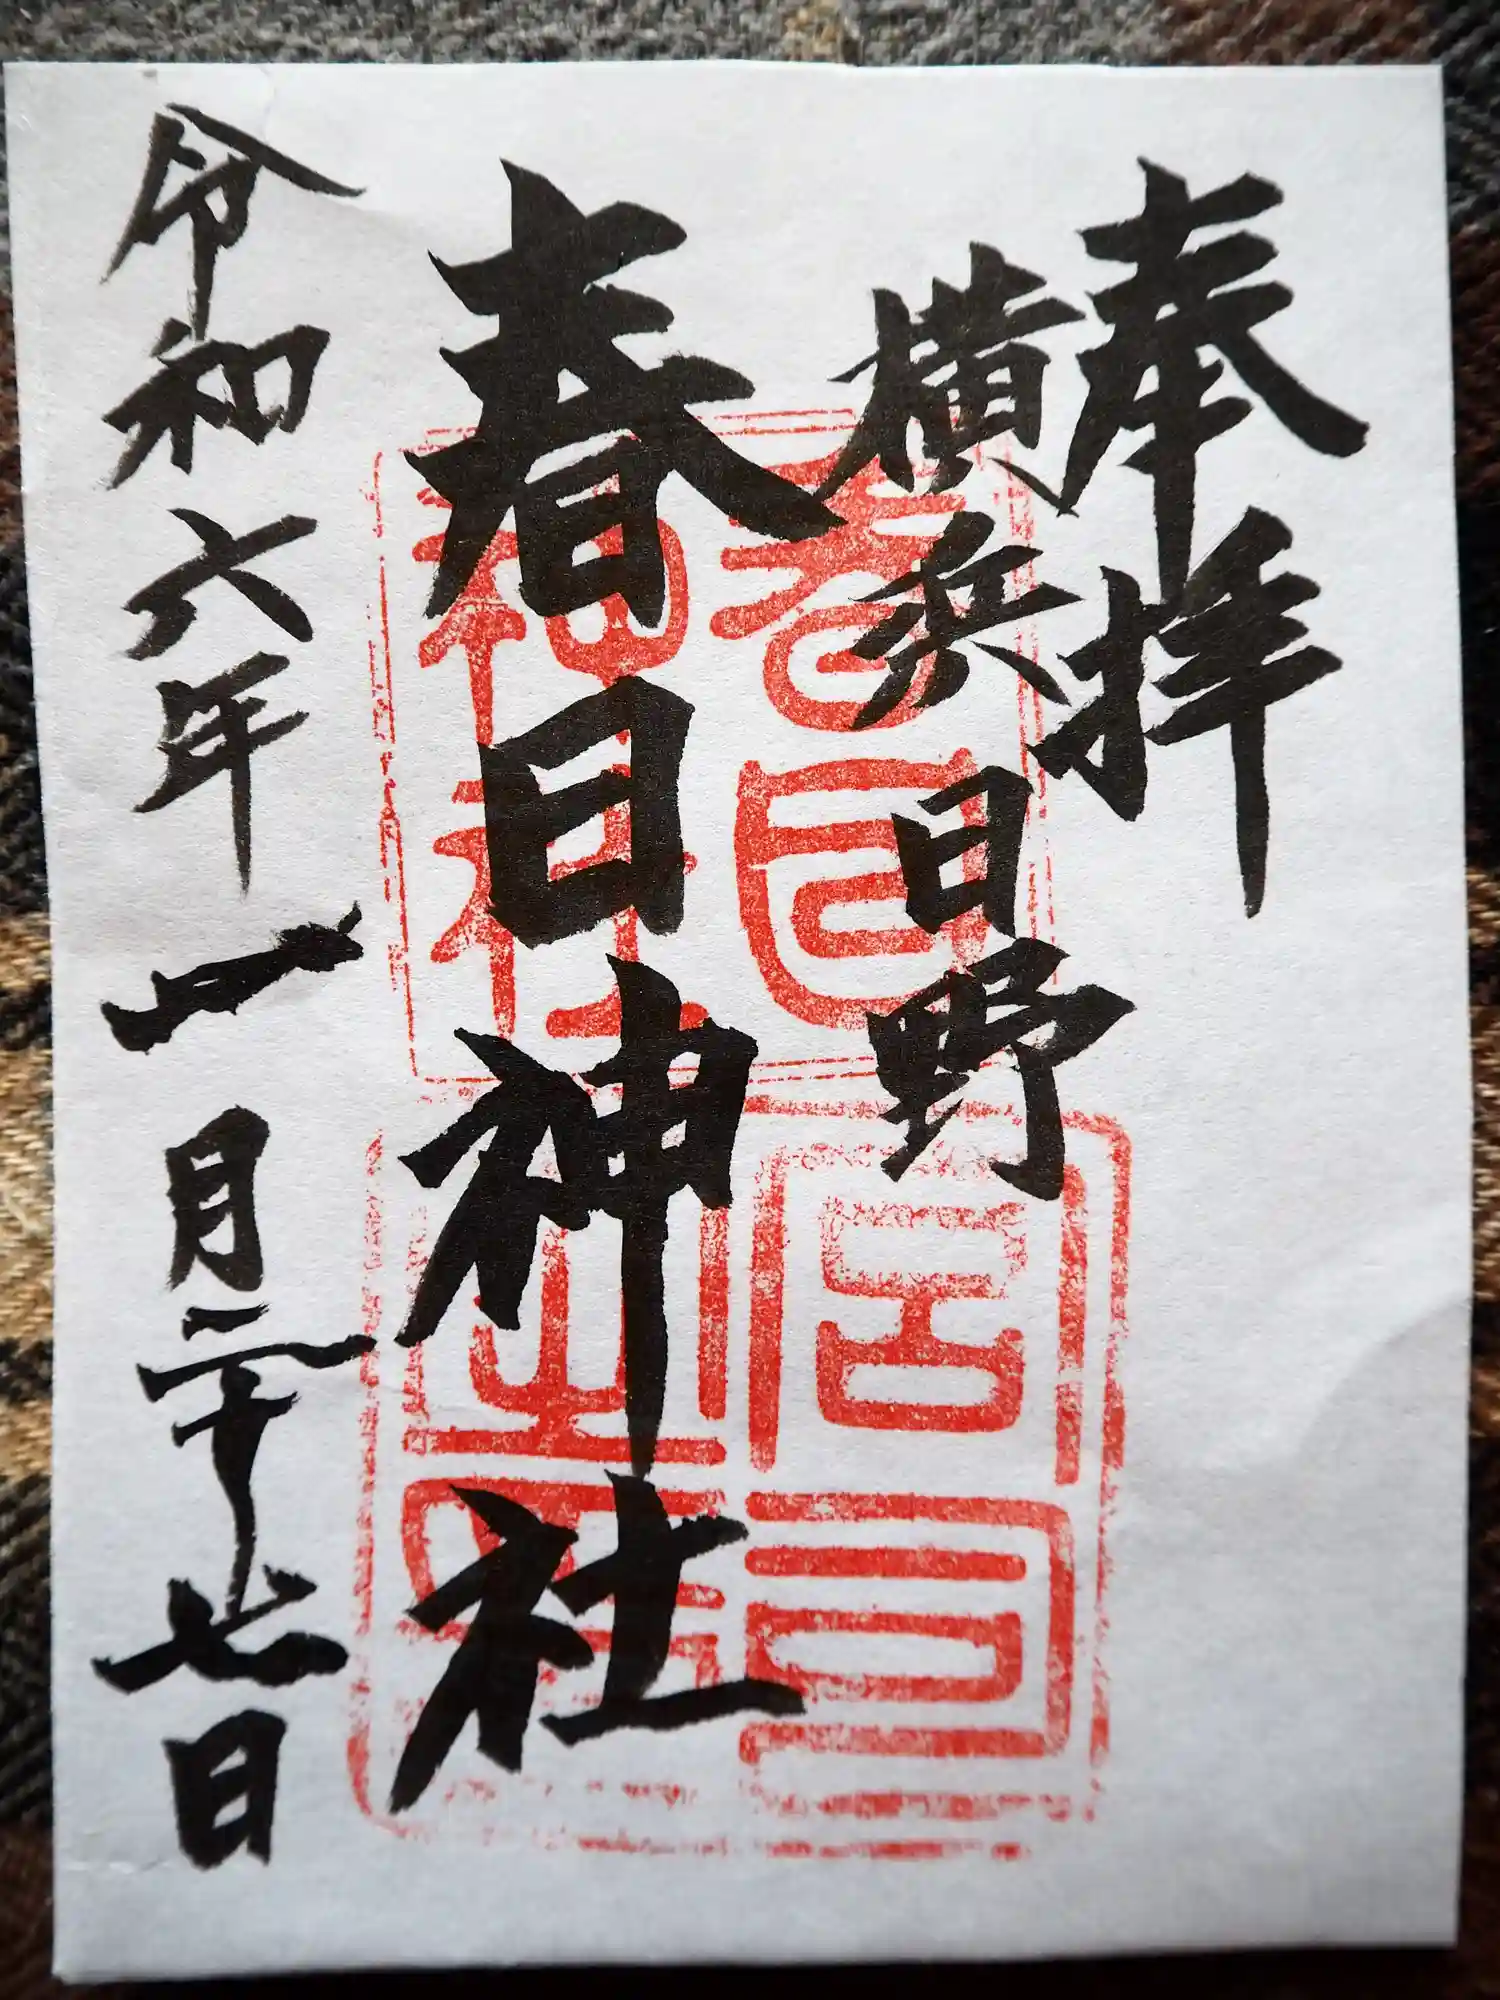 奉拝
横浜日野
春日神社
令和六年一月二十七日
春日
神社
宮司
之印